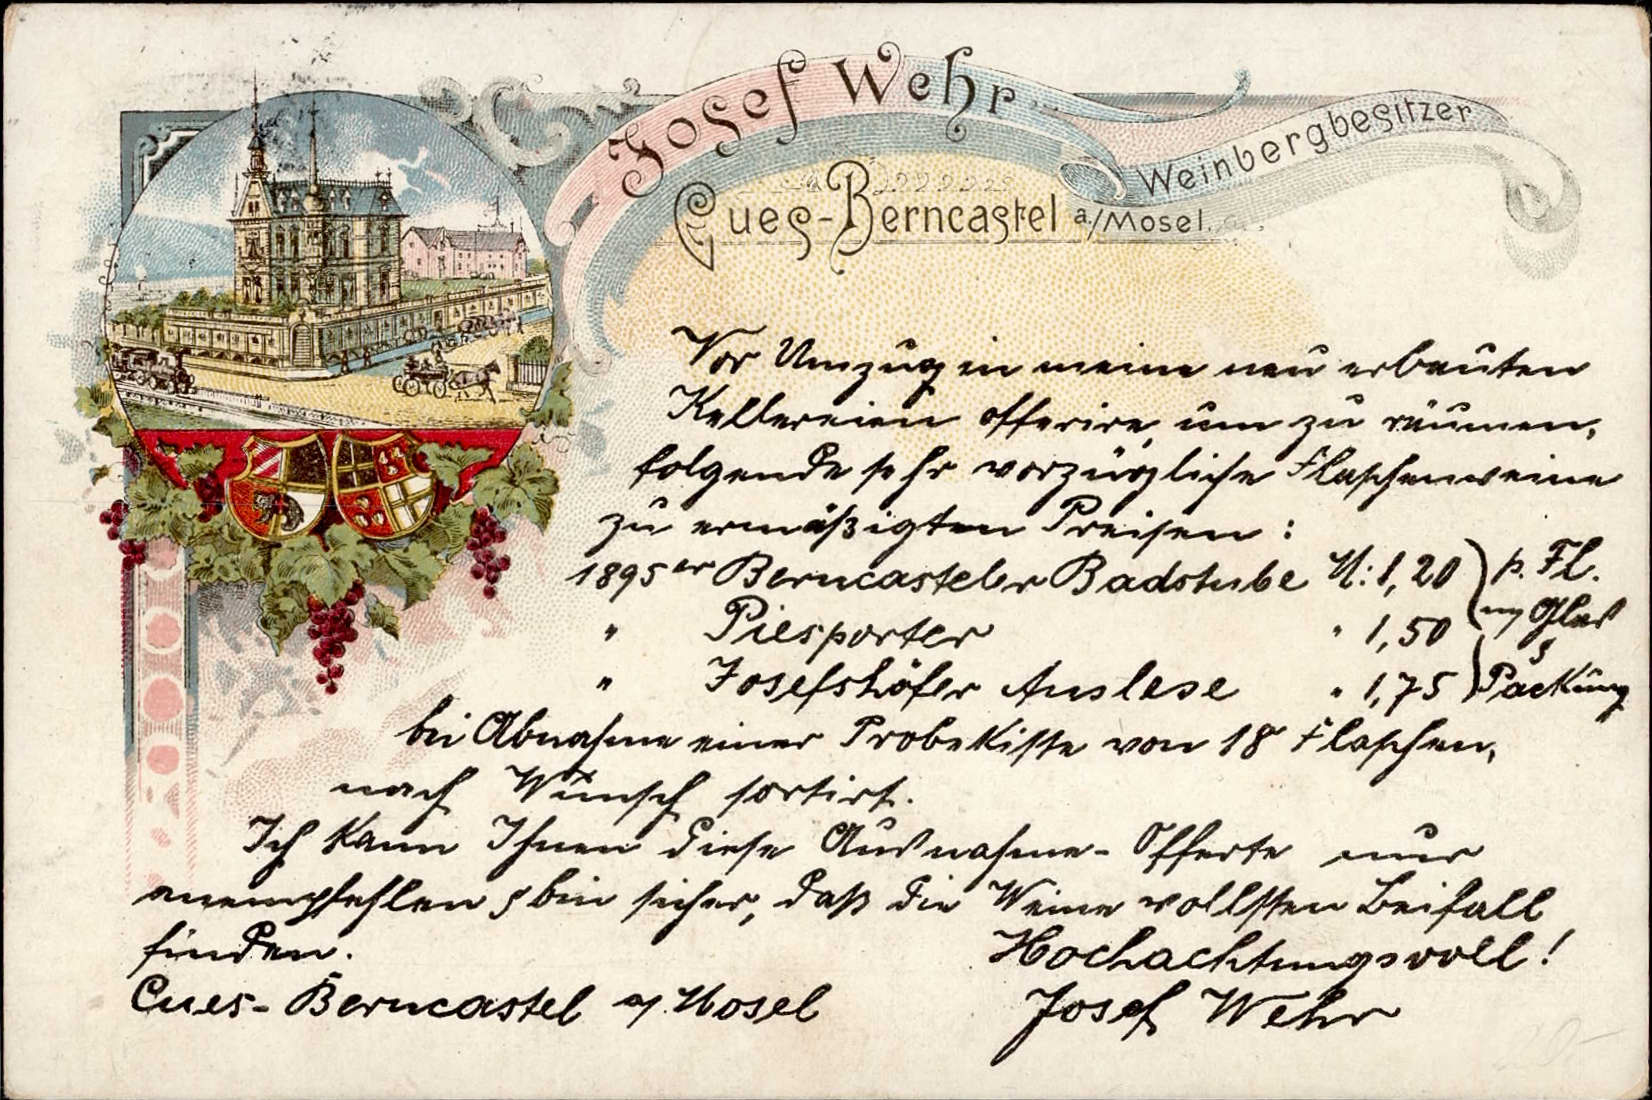 Josef Wehr
Weinbergbesitzer
Cues-Berncastel a/Mosel.
Vor Umzug in meine neu erbauten
Kellereien offerire, um zu räumen,
folgende sehr vorzügliche Flaschenweine
zu ermäßigten Preisen:
1895er Berncasteler Badstube M: 1,20 p. Fl.
" Piesporter " 1,50 m/ Glas
" Josefshöfer Auslese " 1,75 & Packung
bei Abnahme einer Probekiste von 18 Flaschen,
nach Wunsch sortirt.
Ich kann Ihnen diese Ausnahme-Offerte nur
anempfehlen & bin sicher, daß die Weine vollsten Beifall
finden.
Hochachtungsvoll!
Cues-Berncastel a/Mosel
Josef Wehr